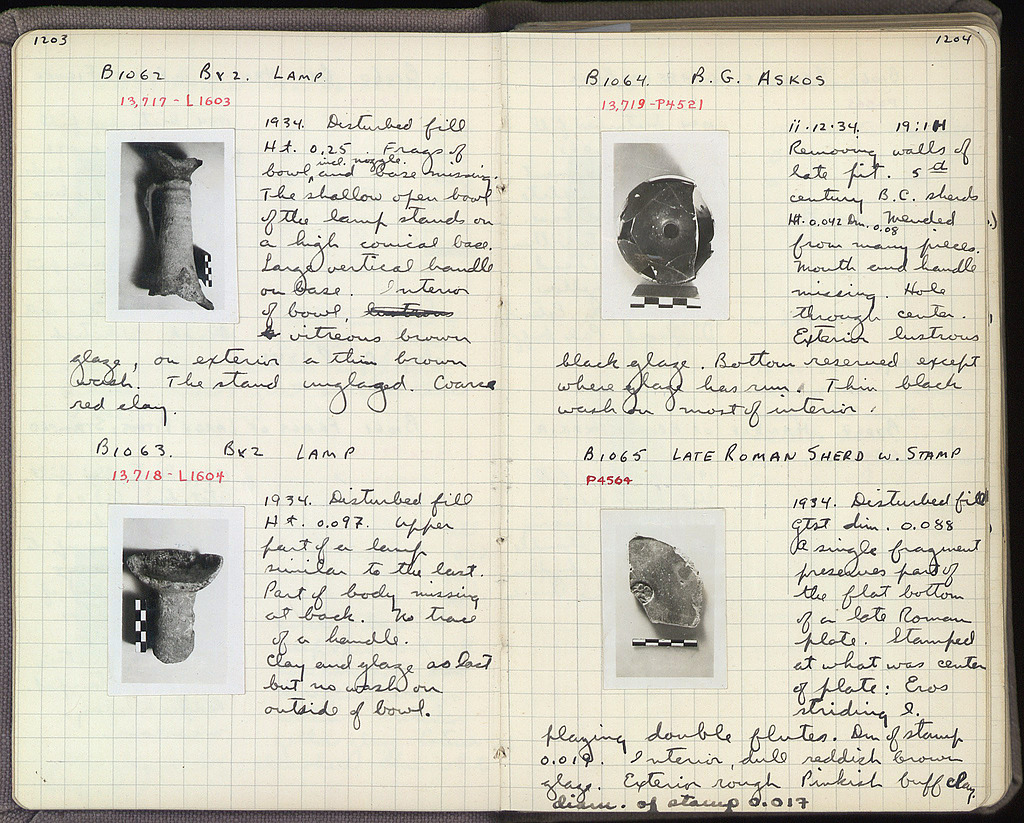 1203
B1062 Byz. LAMP
13,717 - L1603
1934. Disturbed fill
Ht. 0.25. Frags of
incl. nozzle.
bowl, and base missing.
The shallow open bowl
of the lamp stands on
a high conical base.
Large vertical handle
on base. Interior
of bowl, lustrous
vitreous brown
glaze, on exterior a thin brown
wash. The stand unglazed. Coarse
red clay.
B1063. Byz LAMP
13,718 - L1604
1934. Disturbed fill
Ht. 0.097. Upper
part of a lamp
similar to the last.
Part of body missing
at back. No trace
of a handle.
Clay and glaze as last
but no wash on
outside of bowl.
1204
B1064. B.G. ASKOS
13,719 - P4521
ii.12.34. 19:1H
Removing walls of
late pit. 5th
century B.C. sherds
Ht. 0.042 Dm. 0.08 Mended
from many pieces.
Mouth and handle
missing. Hole
through center.
Exterior lustrous
black glaze. Bottom reserved except
where glaze has run. Thin black
wash on most of interior.
B1065 LATE ROMAN SHERD W. STAMP
P4564
1934. Disturbed fill
Gtst dim. 0.088
A single fragment
preserves part of
the flat bottom
of a late Roman
plate. Stamped
at what was center
of plate: Eros
striding l.
playing double flutes. Dm of stamp
0.019. Interior, dull reddish brown
glaze. Exterior rough Pinkish buff clay.
diam. of stamp 0.017